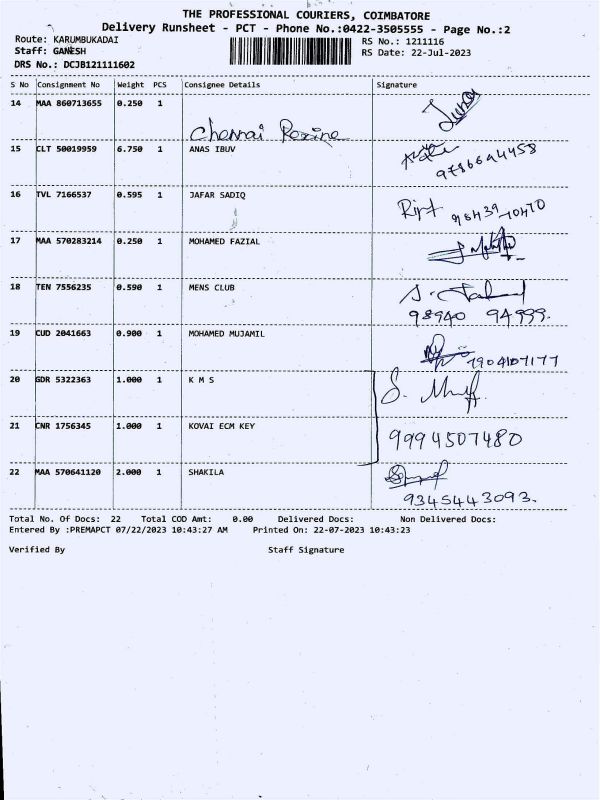 THE PROFESSIONAL COURIERS, COIMBATORE
Delivery Runsheet - PCT - Phone No.:0422-3505555 - Page No.:2
Route: KARUMBUKADAI RS No.: 1211116
Staff: GANESH RS Date: 22-Jul-2023
DRS No.: DCJB121111602
S No Consignment No Weight PCS Consignee Details Signature
14 MAA 860713655 0.250 1
Chennai
15 CLT 50019959 6.750 1 ANAS IBUV
16 TVL 7166537 0.595 1 JAFAR SADIQ
17 MAA 570283214 0.250 1 MOHAMED FAZIAL
18 TEN 7556235 0.590 1 MENS CLUB
98940 94999.
19 CUD 2041663 0.900 1 MOHAMED MUJAMIL
7904107177
20 GDR 5322363 1.000 1 K M S
21 CNR 1756345 1.000 1 KOVAI ECM KEY
9994507480
22 MAA 570641120 2.000 1 SHAKILA
9345443093.
Total No. Of Docs: 22 Total COD Amt: 0.00 Delivered Docs: Non Delivered Docs:
Entered By :PREMAPCT 07/22/2023 10:43:27 AM Printed On: 22-07-2023 10:43:23
Verified By Staff Signature